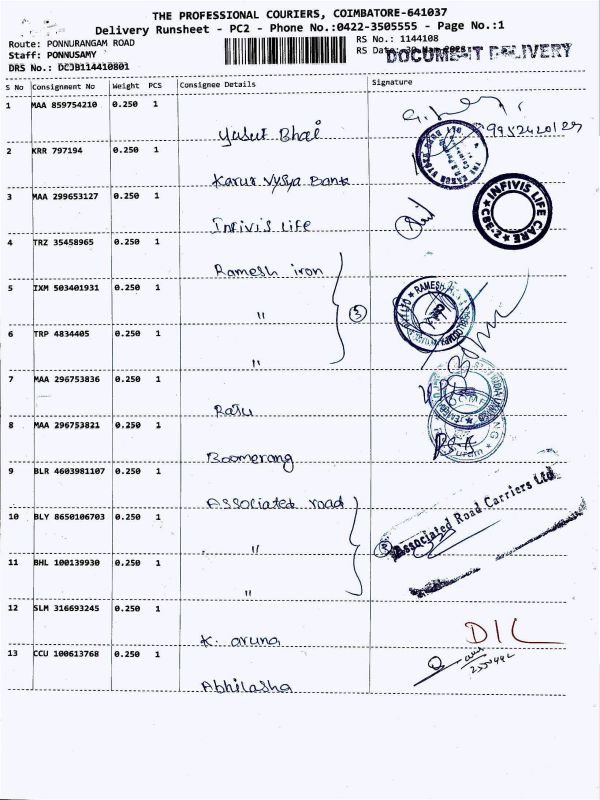 THE PROFESSIONAL COURIERS, COIMBATORE-641037
Delivery Runsheet - PC2 - Phone No.:0422-3505555 - Page No.:1
Route: PONNURANGAM ROAD
RS No.: 1144108
Staff: PONNUSAMY
RS Date:
DOCUMENT DELIVERY
DRS No.: DCJB114410801
S No Consignment No Weight PCS Consignee Details Signature
1 MAA 859754210 0.250 1
Yusuf Bhai
2 KRR 797194 0.250 1
Karur Vysya Bank
3 MAA 299653127 0.250 1
Infivis Life
INFIVIS LIFE CARE
CBE-2
4 TRZ 35458965 0.250 1
Ramesh iron
5 IXM 503401931 0.250 1
"
3
RAMESH
6 TRP 4834405 0.250 1
"
7 MAA 296753836 0.250 1
Raju
8 MAA 296753821 0.250 1
Boomerang
9 BLR 4603981107 0.250 1
Associated road
10 BLY 8650106703 0.250 1
"
3
Associated Road Carriers Ltd
11 BHL 100139930 0.250 1
"
12 SLM 316693245 0.250 1
K. aruna
DIL
13 CCU 100613768 0.250 1
Abhilasha